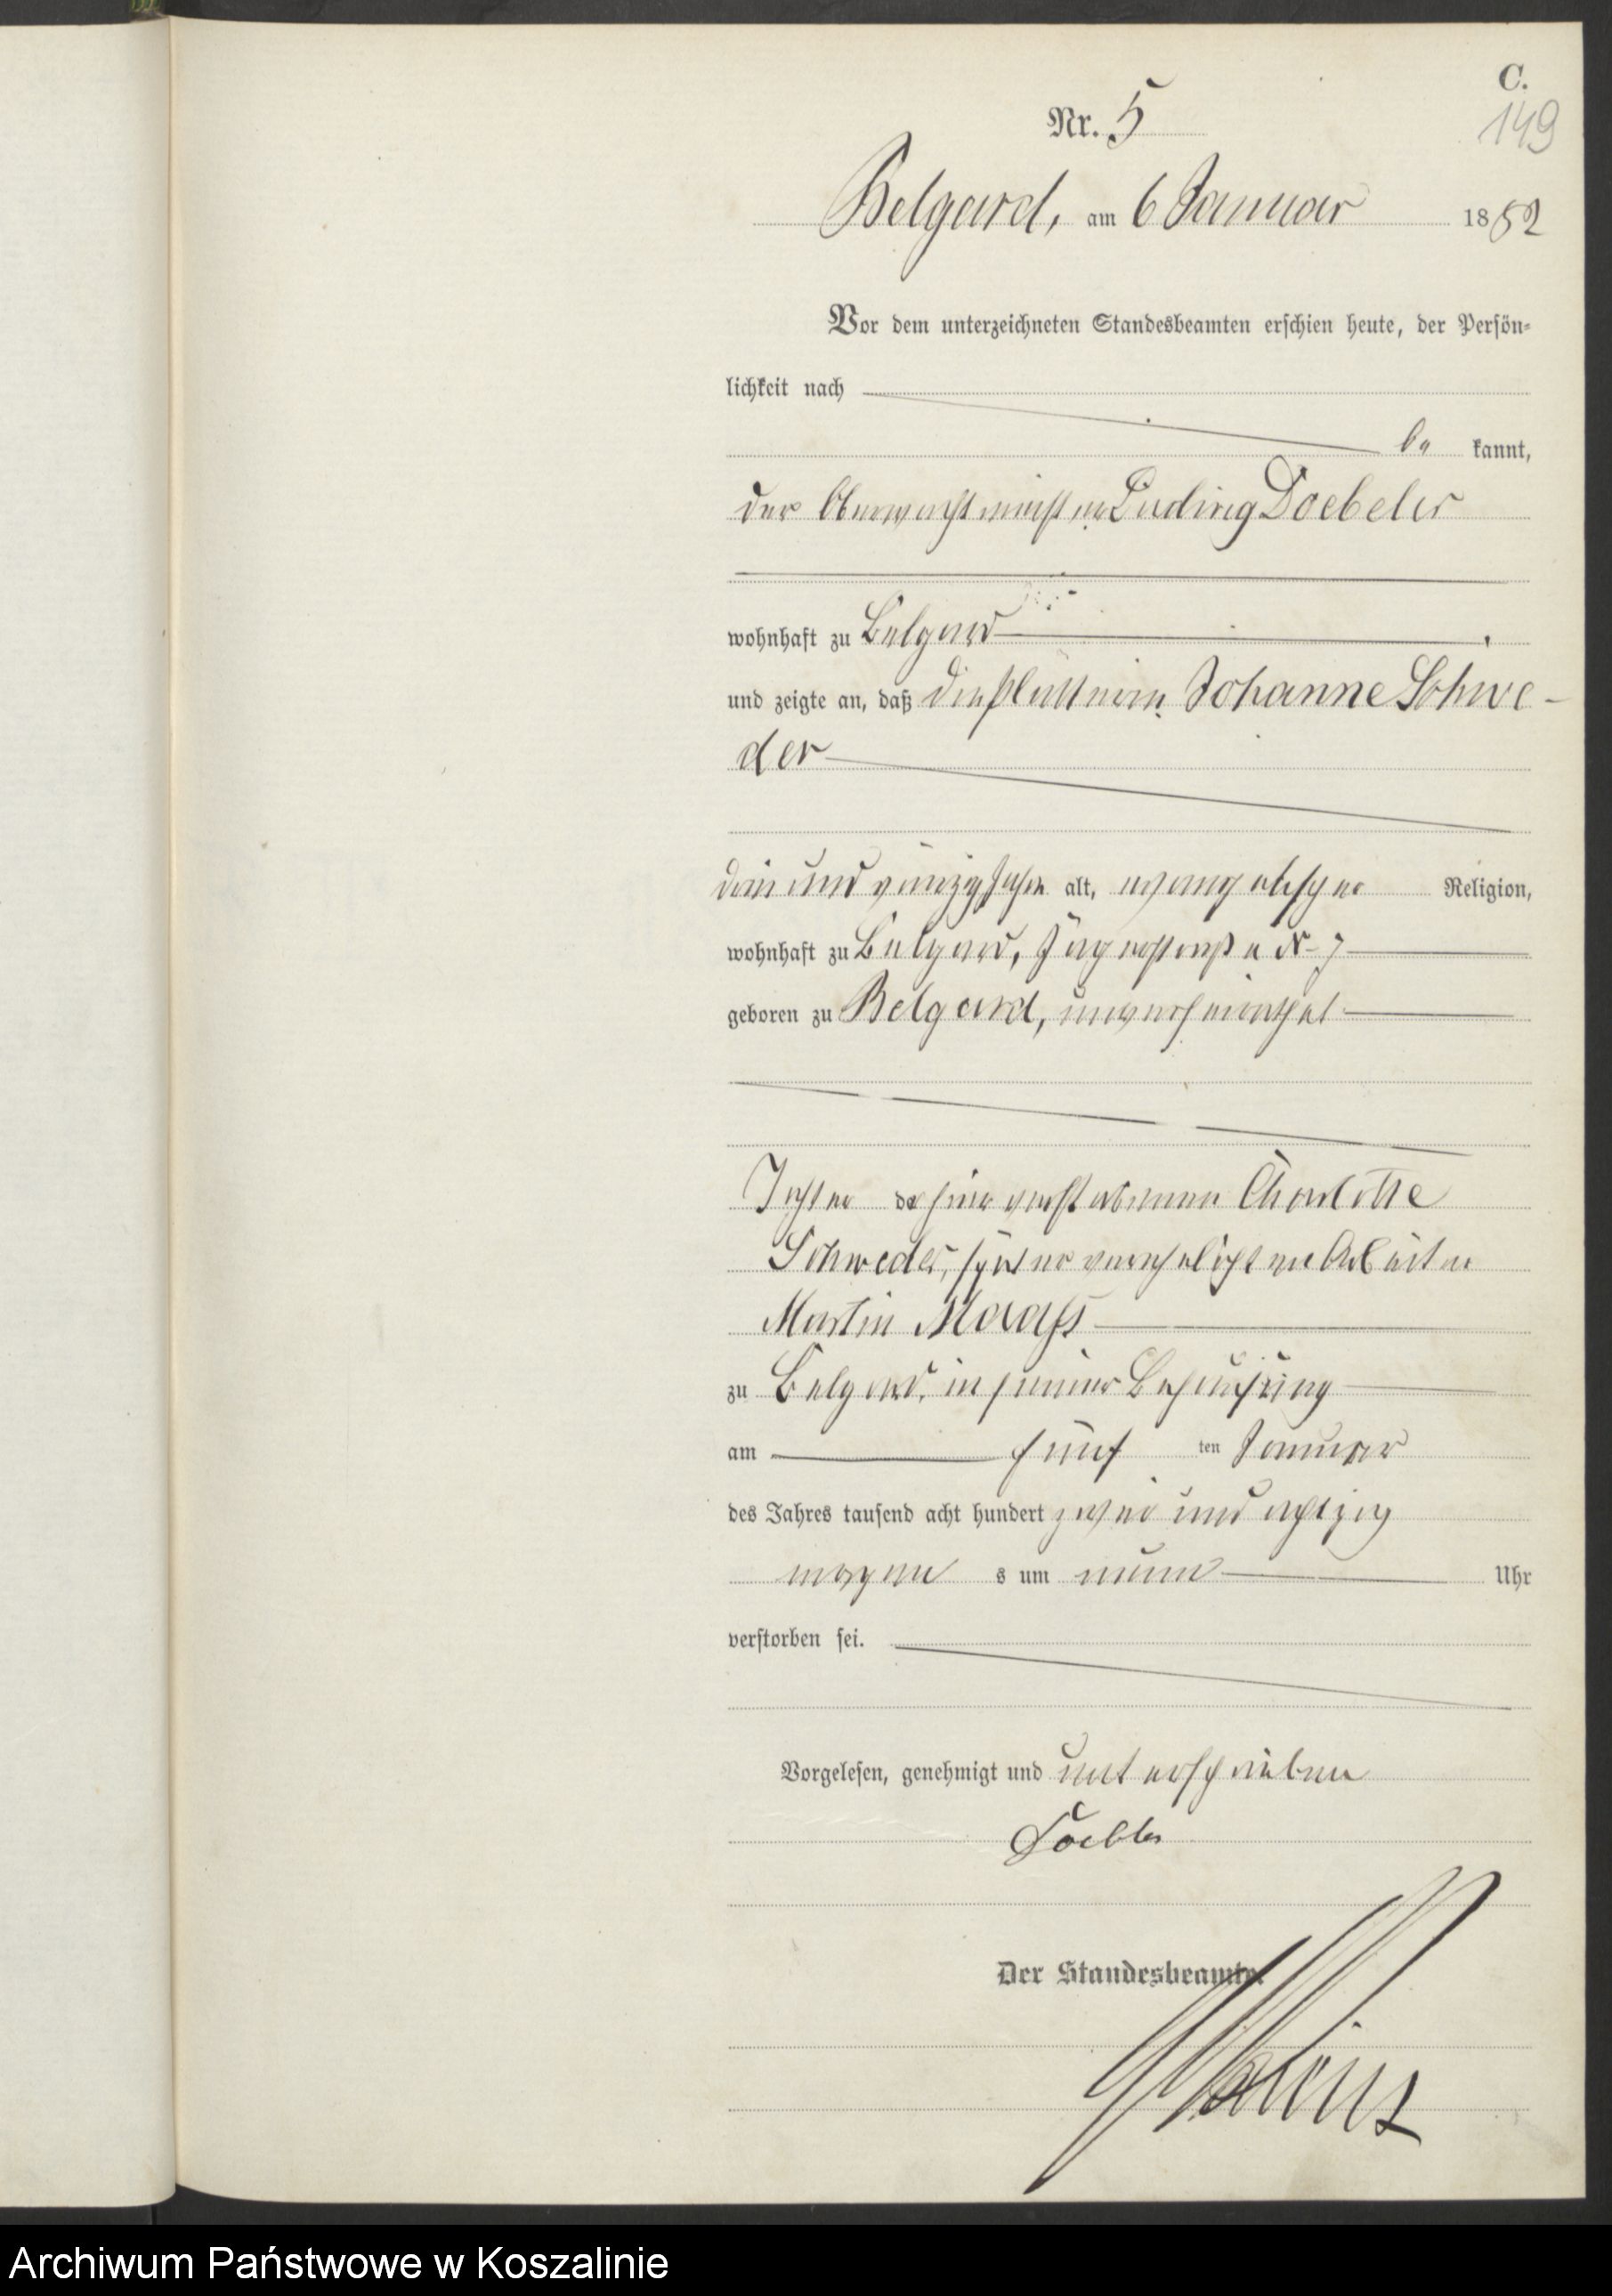 C.
149
Nr. 5
Belgard, am 6 Januar 1882
Vor dem unterzeichneten Standesbeamten erschien heute, der Persön-
lichkeit nach
be kannt,
der Oberwachtmeister Ludwig Doebeler
wohnhaft zu Belgard
und zeigte an, daß die Plätterin Johanne Schwe-
der
drei und vierzig Jahre alt, evangelischer Religion,
wohnhaft zu Belgard, Jägerstraße No 7
geboren zu Belgard, unverheirathet
Tochter der hier verstorbenen Charlotte
Schweder, später verehelichten Arbeiter
Martin Maaß
zu Belgard, in seiner Behausung
am fünf ten Januar
des Jahres tausend acht hundert zwei und achtzig
morgen s um neun Uhr
verstorben sei.
Vorgelesen, genehmigt und unterschrieben
Doebler
Der Standesbeamte.
Archiwum Państwowe w Koszalinie